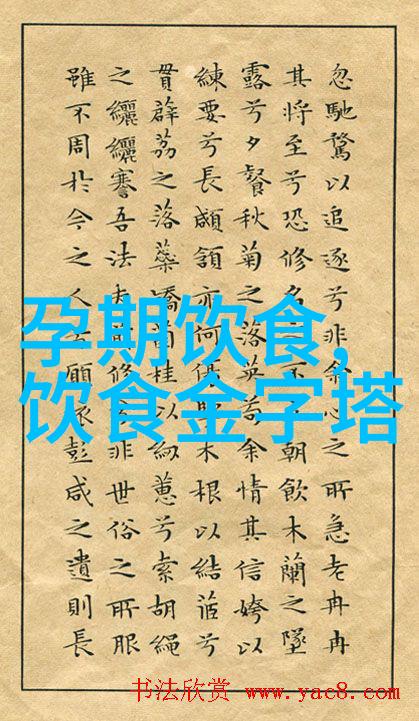 忽馳騖以追逐兮非余心之所急老冉冉
其将至兮恐修名不朝飲木蘭之墜
露兮夕餐秋菊之落英苟余情其信姱以
練要兮長顑頷亦何木根以結茝兮
貫薜荔之落蘂矯菌桂以紉蕙兮索胡繩
之纚纚謇吾法夫前修非世俗之所服
雖不周於今之人兮願依彭咸之遺則長
孕期饮食,
饮食金字塔
书法欣赏 www.yac8.com